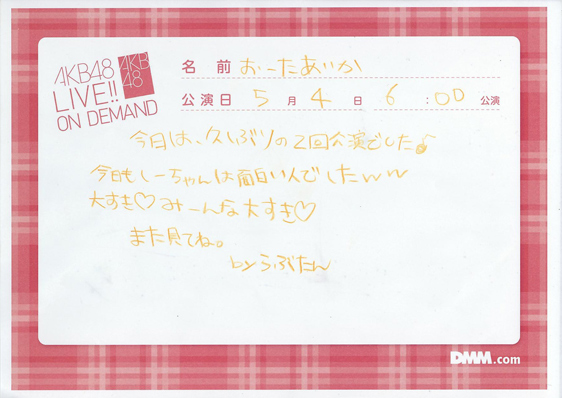 AKB48
LIVE!!
ON DEMAND
AKB
48
名 前 おーたあいか
公演日 5 月 4 日 6 : 00 公演
今日は、久しぶりの2回公演でした♪
今日もしーちゃんは面白い人でしたwww
大すき♡みーんな大すき♡
また見てね。
by らぶたん
DMM.com